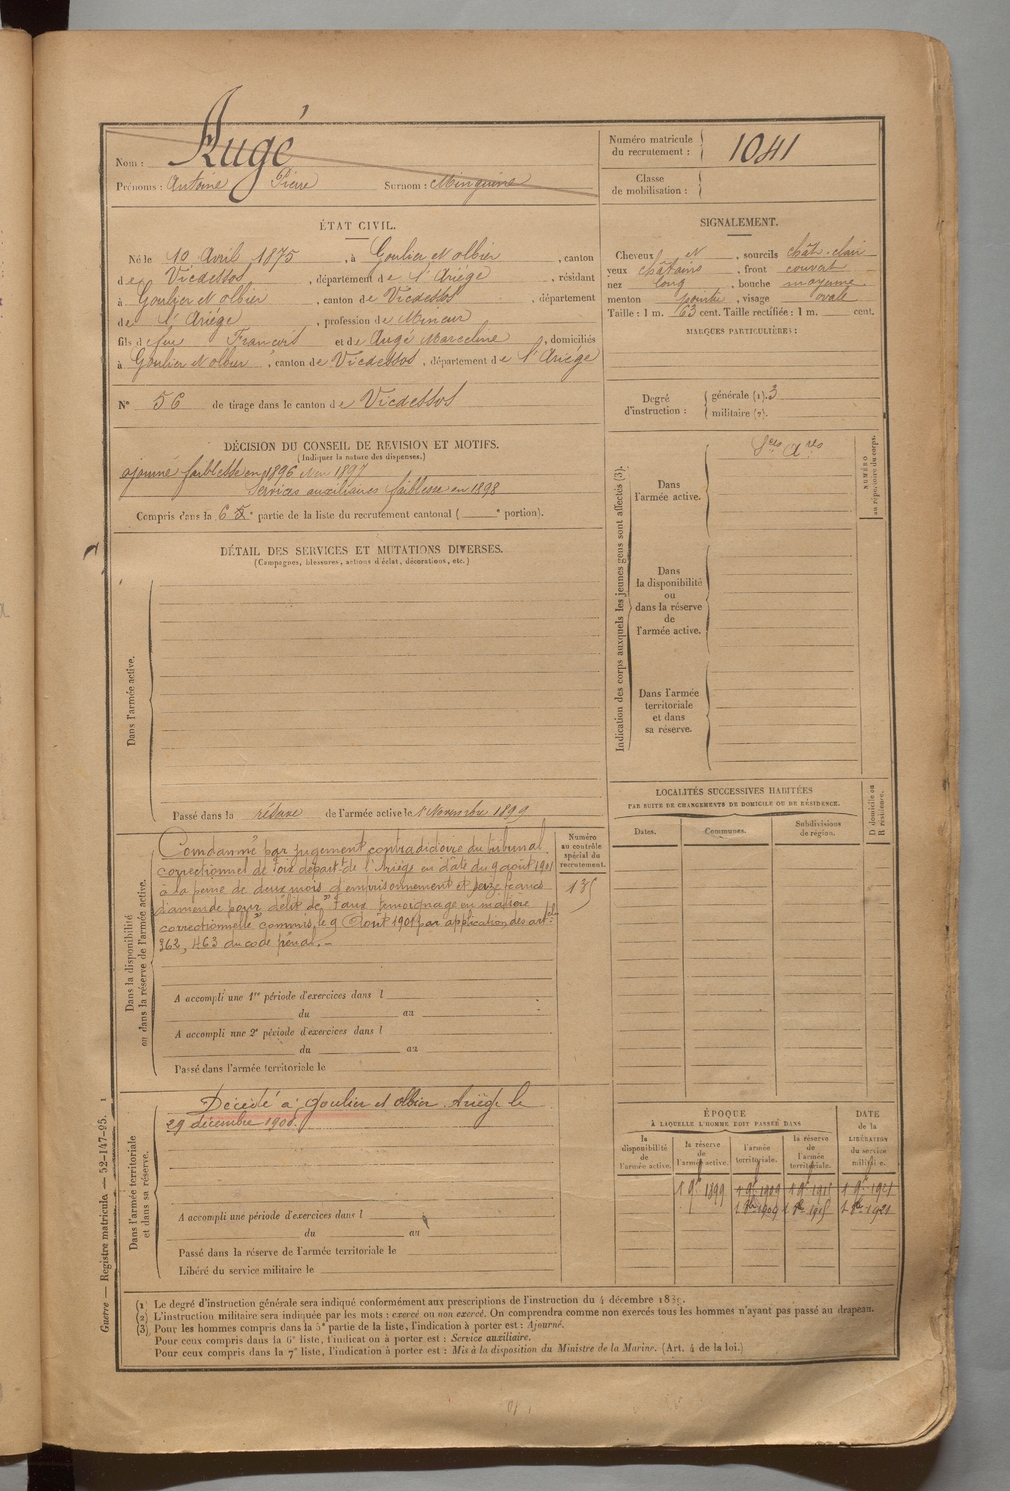 Nom : Augé
Prénoms : Antoine Pierre Surnom : Minguine
Numéro matricule du recrutement : 1041
Classe de mobilisation :
ÉTAT CIVIL.
Né le 10 Avril 1875, à Goulier et olbier, canton
de Vicdessos, département de l'Ariège, résidant
à Goulier et olbier, canton de Vicdessos, département
de l'Ariège, profession de Mineur
fils de feu François et de Augé Marceline, domiciliés
à Goulier et olbier, canton de Vicdessos, département de l'Ariège
N° 56 de tirage dans le canton de Vicdessos
SIGNALEMENT.
Cheveux et, sourcils chât-clair
yeux châtains, front couvert
nez long, bouche moyenne
menton pointu, visage ovale
Taille : 1 m. 63 cent. Taille rectifiée : 1 m. cent.
MARQUES PARTICULIÈRES :
Degré d'instruction : générale (1). 3
militaire (2).
DÉCISION DU CONSEIL DE REVISION ET MOTIFS.
(Indiquez la nature des dispenses.)
ajourné faiblesse en 1896 1897
Services auxiliaires faiblesse en 1898
Compris dans la 6e partie de la liste du recrutement cantonal ( e portion).
DÉTAIL DES SERVICES ET MUTATIONS DIVERSES.
(Campagnes, blessures, actions d'éclat, décorations, etc.)
Dans l'armée active.
Passé dans la réserve de l'armée active le 1er Novembre 1899
Indication des corps auxquels les jeunes gens sont affectés (3).
NUMÉRO au répertoire du corps.
Dans l'armée active.
Sces Ares
Dans la disponibilité ou dans la réserve de l'armée active.
Dans l'armée territoriale et dans sa réserve.
Dans la disponibilité ou dans la réserve de l'armée active.
Condamné par jugement contradictoire du tribunal
correctionnel de Foix départt de l'Ariège en date du 9 août 1901
à la peine de deux mois d'emprisonnement et seize francs
d'amende pour délit de "Faux témoignage en matière
correctionnelle" commis, le 9 Août 1901 par application des artcles
362, 463 du code pénal.-
Numéro au contrôle spécial du recrutement.
135
A accompli une 1re période d'exercices dans l
du au
A accompli une 2e période d'exercices dans l
du au
Passé dans l'armée territoriale le
LOCALITÉS SUCCESSIVES HABITÉES
PAR SUITE DE CHANGEMENTS DE DOMICILE OU DE RÉSIDENCE.
Dates. Communes. Subdivisions de région. D domicile ou R résidence.
Dans l'armée territoriale et dans sa réserve.
Décédé à Goulier et olbier Ariège le
29 décembre 1908.
A accompli une période d'exercices dans l
du au
Passé dans la réserve de l'armée territoriale le
Libéré du service militaire le
ÉPOQUE
À LAQUELLE L'HOMME DOIT PASSER DANS
DATE de la LIBÉRATION du service militaire.
la disponibilité de l'armée active. la réserve de l'armée active. l'armée territoriale. la réserve de l'armée territoriale.
1 9bre 1899 1 9bre 1909 1 9bre 1915 1 9bre 1921
1 8bre 1909 1 8bre 1915 1 8bre 1921
(1) Le degré d'instruction générale sera indiqué conformément aux prescriptions de l'instruction du 4 décembre 1889.
(2) L'instruction militaire sera indiquée par les mots : exercé ou non exercé. On comprendra comme non exercés tous les hommes n'ayant pas passé au drapeau.
(3) Pour les hommes compris dans la 5e partie de la liste, l'indication à porter est : Ajourné.
Pour ceux compris dans la 6e liste, l'indication à porter est : Service auxiliaire.
Pour ceux compris dans la 7e liste, l'indication à porter est : Mis à la disposition du Ministre de la Marine. (Art. 4 de la loi.)
Guerre — Registre matricule. — 52-147-95. 1